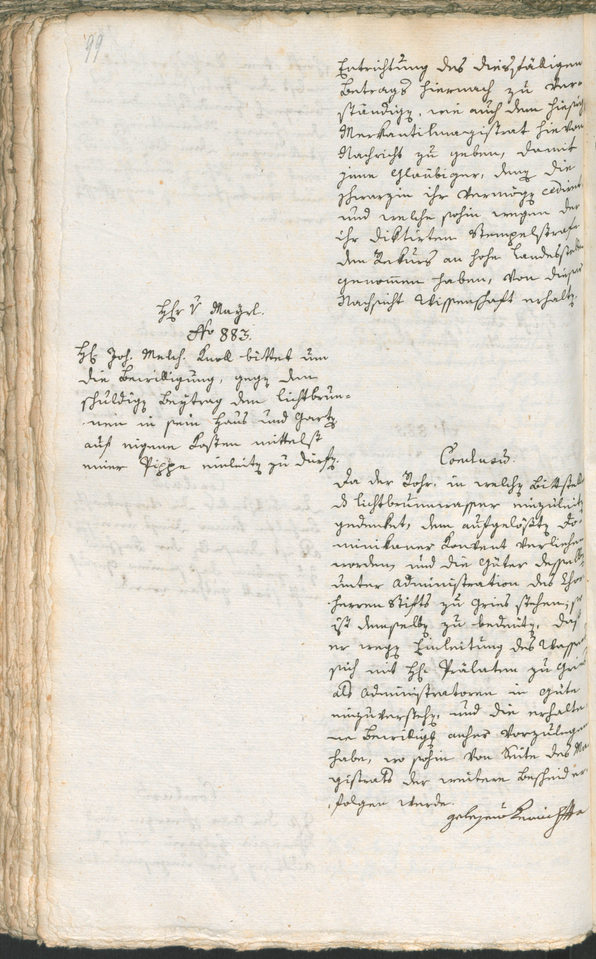 99
Entrichtung des diesfälligen
Betrags hiernach zu ver-
ständigen, wie auch dem hiesig
Merkantilmagistrat hievon
Nachricht zu geben, damit
jene Gläubiger, denen die
ihr Vermögen cedirt
und welche sohin wegen der
ihr diktirten Stempelstrafe
den Rekurs an hohe Landesstelle
genommen haben, von dieser
Nachsicht Wissenschaft erhalten.
Hhr v Mayrl.
No 883.
Hh. Joh. Melch. Knoll bittet um
die Bewilligung, gegen den
schuldigen Beytrag den lichtbrun-
nen in sein Haus und Garten
auf eigene Kosten mittelst
einer Pippe einleiten zu dürfen.
Conclusum.
Da der Rohr, in welchen Bittsteller
das lichtbrunnwasser einzuleiten
gedenket, dem aufgelösten Do-
minikaner Konvent verliehen
worden, und die Güter desselben
unter Administration des Chor-
herren Stifts zu Gries stehen; so
ist demselben zu bedeuten, daß
er wegen Einleitung des Wassers
sich mit Hh. Prälaten zu Gries
als Administratoren in Güte
einzuverstehen, und die erhalte-
ne Bewilligung anher vorzulegen
habe, wo sohin von Seite des Ma-
gistrats der weitere Bescheid er-
folgen werde.